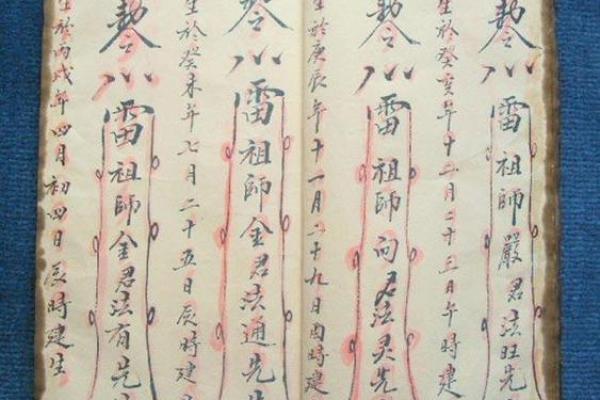 敕令
雷祖師嚴君法旺先
生於癸亥年十二月二十三日午時建
敕令
雷祖師向君法灵先
生於庚辰年十一月二十九日酉時建
敕令
雷祖師金君法通先
生於癸未年七月二十五日辰時建
敕令
雷祖師金君法有先
生於丙戌年四月初四日辰時建生